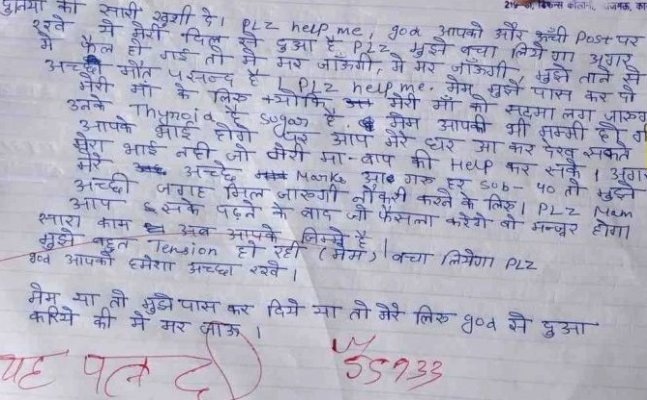 दुनिया की सारी खुशी दे। PLZ help me, god आपको और अच्छी Post पर
रखे ये मेरी दिल से दुआ है PLZ मुझे बचा लिये गा अगर
मे फैल हो गई तो मे मर जाऊँगी, मे मर जाऊँगी, मुझे ताने से
अच्छी मौत पसन्द है। PLZ help me. मेम मुझे पास कर दो
मेरी माँ के लिए क्योंकि मेरी माँ को सदमा लग जाएगा
उनके Thynoid है Sugar है। मेम आपकी भी मम्मी हो गी
आपके भाई होगे पर आप मेरे घर आ कर देख सकते
मेरा भाई नही जो मेरी मा-बाप की Help कर सके। अगर
मेरे अच्छे Marks आ गए हर Sub- 40 तो मुझे
अच्छी जगह मिल जाएगी नौकरी करने के लिए। PLZ Mam
आप इसके पढ़ने के बाद जो फैसला करेगे वो मन्जूर होगा
सारा काम अब आपके जिम्मे है।
मुझे बहुत Tension हो रही (मेम) बचा लियेगा PLZ
god आपको हमेशा अच्छा रखे।
मेम या तो मुझे पास कर दिये या तो मेरे लिए god से दुआ
करिये की मे मर जाऊ।
यह पत्र